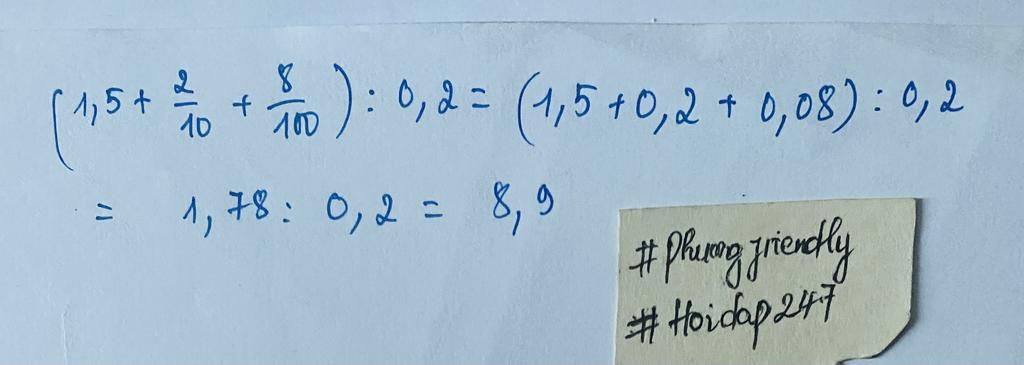 (1,5 + 2/10 + 8/100) : 0,2 = (1,5 + 0,2 + 0,08) : 0,2
= 1,78 : 0,2 = 8,9
# Phuong friendly
# Hoidap247